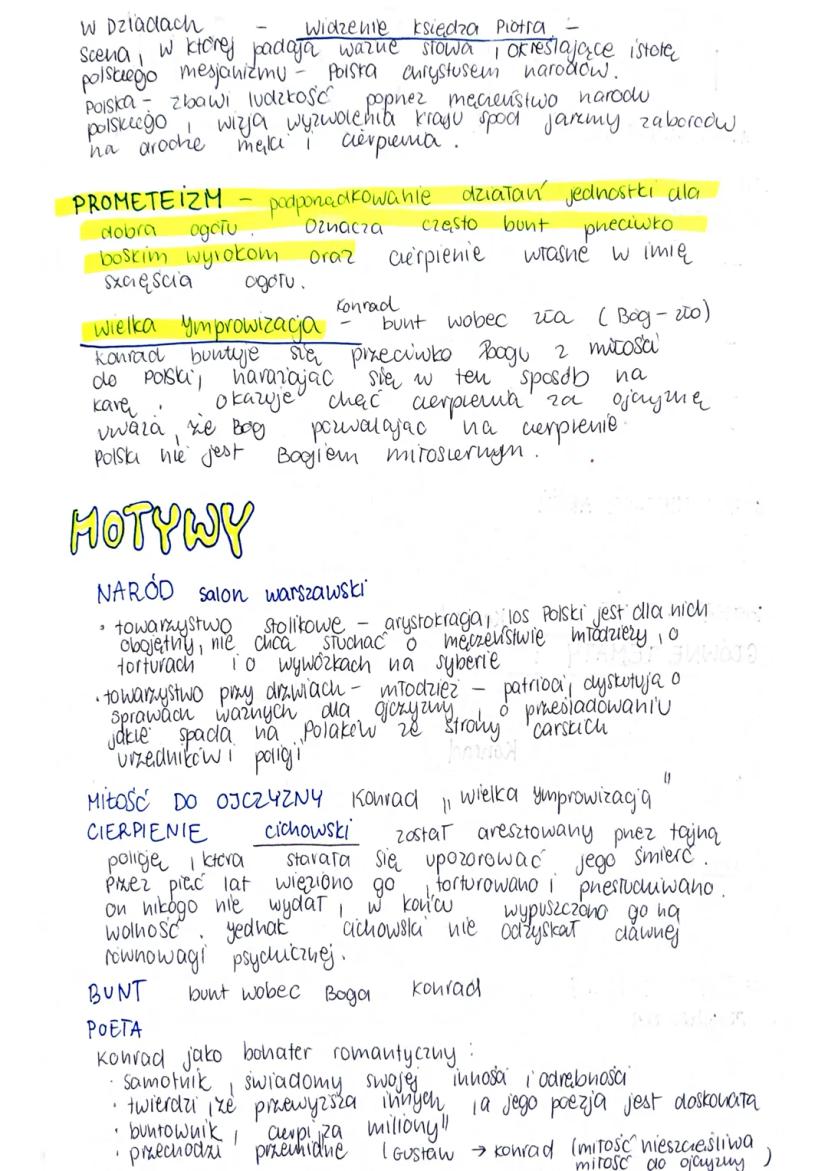 W Dziadach - Widzenie Księdza Piotra -
scena, w której padają ważne słowa, określające istotę
polskiego mesjanizmu - Polska chrystusem narodów.
Polska - zbawi ludzkość poprzez męczeństwo narodu
polskiego, wizja wyzwolenia kraju spod jarzmy zaborców
na drodze męki i cierpienia.
PROMETEIZM - podporządkowanie działań jednostki dla
dobra ogółu. Oznacza często bunt przeciwko
boskim wyrokom oraz cierpienie własne w imię
szczęścia ogółu.
Konrad
Wielka Ymprowizacja - bunt wobec zła (Bóg - zło)
Konrad buntuje się przeciwko Bogu z miłości
do Polski, narażając się w ten sposób na
karę. Okazuje chęć cierpienia za ojczyznę
uważa, że Bóg pozwalając na cierpienie
Polski nie jest Bogiem miłosiernym.
MOTYWY
NARÓD salon warszawski
• towarzystwo stolikowe - arystokracja, los Polski jest dla nich
obojętny, nie chcą słuchać o męczeństwie młodzieży, o
torturach i o wywózkach na syberie
• towarzystwo przy drzwiach - młodzież - patrioci, dyskutują o
sprawach ważnych dla ojczyzny, o prześladowaniu
jakie spada na Polaków ze strony carskich
urzędników i policji
MIŁOŚĆ DO OJCZYZNY Konrad „Wielka Ymprowizacja"
CIERPIENIE Cichowski został aresztowany przez tajną
policję, która starała się upozorować jego śmierć.
Przez pięć lat więziono go, torturowano i przesłuchiwano.
On nikogo nie wydał, w końcu wypuszczono go na
wolność. Jednak Cichowski nie odzyskał dawnej
równowagi psychicznej.
BUNT bunt wobec Boga Konrad
POETA
Konrad jako bohater romantyczny:
• samotnik, świadomy swojej inności i odrębności
• twierdzi, że przewyższa innych, a jego poezja jest doskonała
• buntownik, cierpi „za miliony"
• przechodzi przemianę (Gustaw → Konrad (miłość nieszczęśliwa,
miłość do ojczyzny)